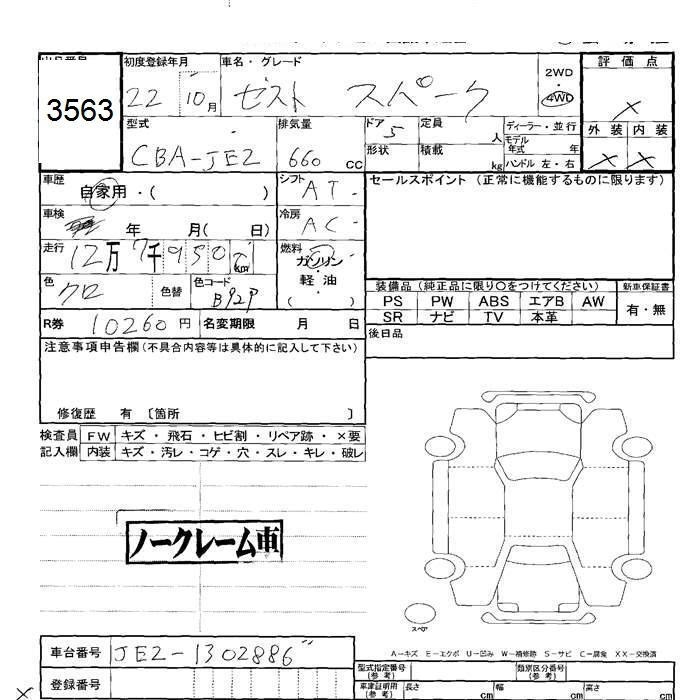 初度登録年月 車名・グレード
3563 22 10月 ゼスト スパーク 2WD 4WD 評価点 ×
型式 CBA-JE2 排気量 660 cc ドア 5 定員 人 ディーラー・並行 外装 内装
形状 積載 kg モデル年式 年 ハンドル 左・右 × ×
車歴 自家用・( ) シフト AT セールスポイント (正常に機能するものに限ります)
車検 年 月( 日) 冷房 AC
走行 12万7千950 km 燃料 ガソリン・軽・油 ( )
色 クロ 色替 色コード B92P
装備品 (純正品に限り○をつけてください) 新車保証書
PS PW ABS エアB AW 有・無
SR ナビ TV 本革
R券 10260円 名変期限 月 日 後日品
注意事項申告欄(不具合内容等は具体的に記入して下さい)
修復歴 有 〔箇所 〕
検査員 FW キズ・飛石・ヒビ割・リペア跡・×要
記入欄 内装 キズ・汚レ・コゲ・穴・スレ・キレ・破レ
ノークレーム車
スペア
A-キズ E-エクボ U-凹み W-補修跡 S-サビ C-腐食 XX-交換済
車台番号 JE2-1302886
型式指定番号 (参考) 類別区分番号 (参考)
登録番号 車庫証明用 (参考) 長さ cm 幅 cm 高さ cm
×